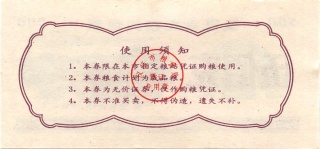 使用须知
1。本券限在本市指定粮站凭证购粮使用。
2。本券粮食计划为成品粮。
3。本券为无价证券，仅作购粮凭证。
4。本券不准买卖，不得伪造，遗失不补。